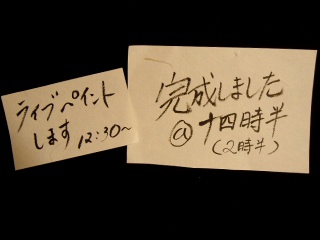 ライブペイント
します 12:30〜
完成しました
@十四時半
(2時半)